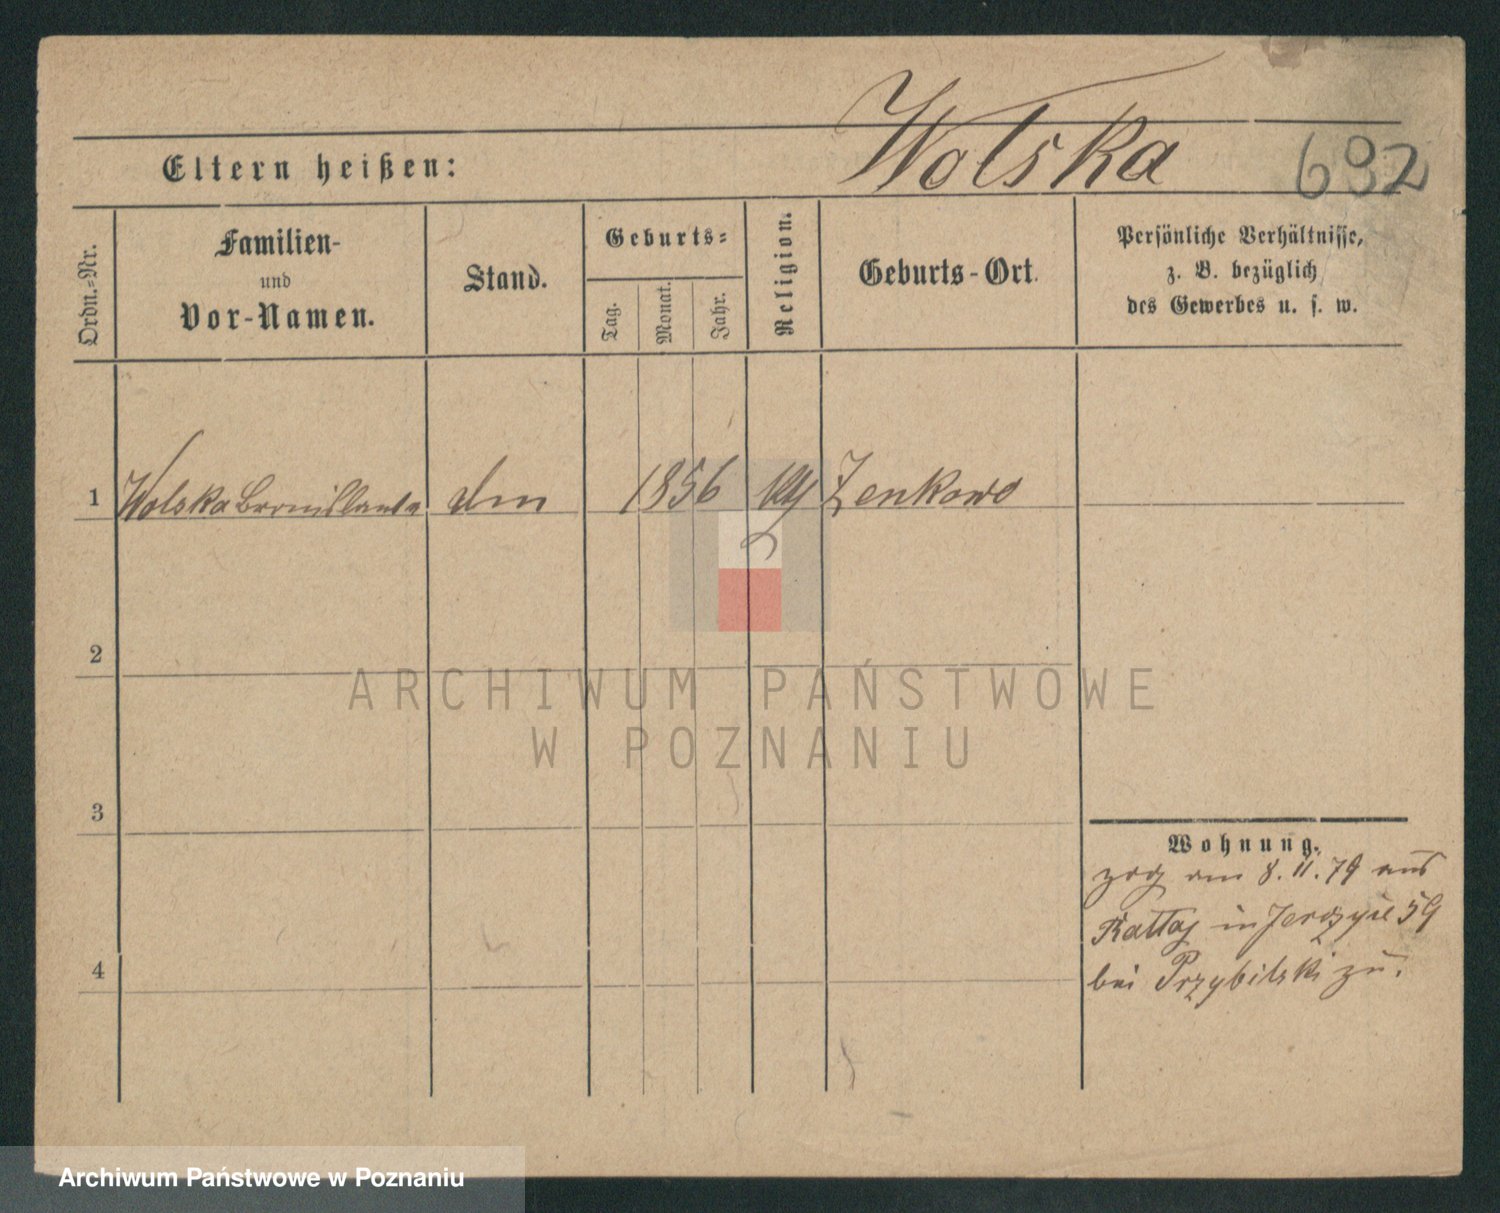 Wolska
632
Eltern heißen:
Ordn.-Nr.
Familien-
und
Vor-Namen.
Stand.
Geburts-
Tag.
Monat.
Jahr.
Religion.
Geburts-Ort.
Persönliche Verhältnisse,
z. B. bezüglich
des Gewerbes u. s. w.
1 Wolska Bronislawa 1856 Zenkowo
2
3
4
ARCHIWUM PAŃSTWOWE
W POZNANIU
Wohnung.
zog am 8. 11. 79 aus
Rattaj in Jerzyce 59
bei Przybilski zu.
Archiwum Państwowe w Poznaniu